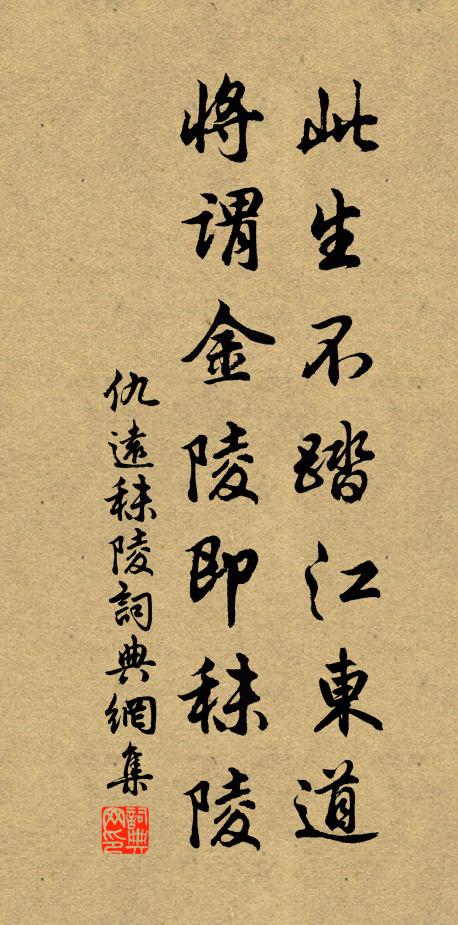 此生不踏江東道
將謂金陵即秣陵
仇遠秣陵詞典網集
詞典網印